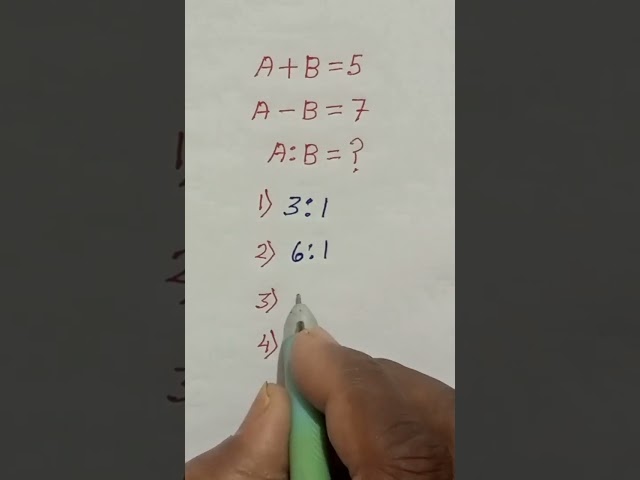 A+B=5
A-B=7
A:B=?
1) 3:1
2) 6:1
3)
4)